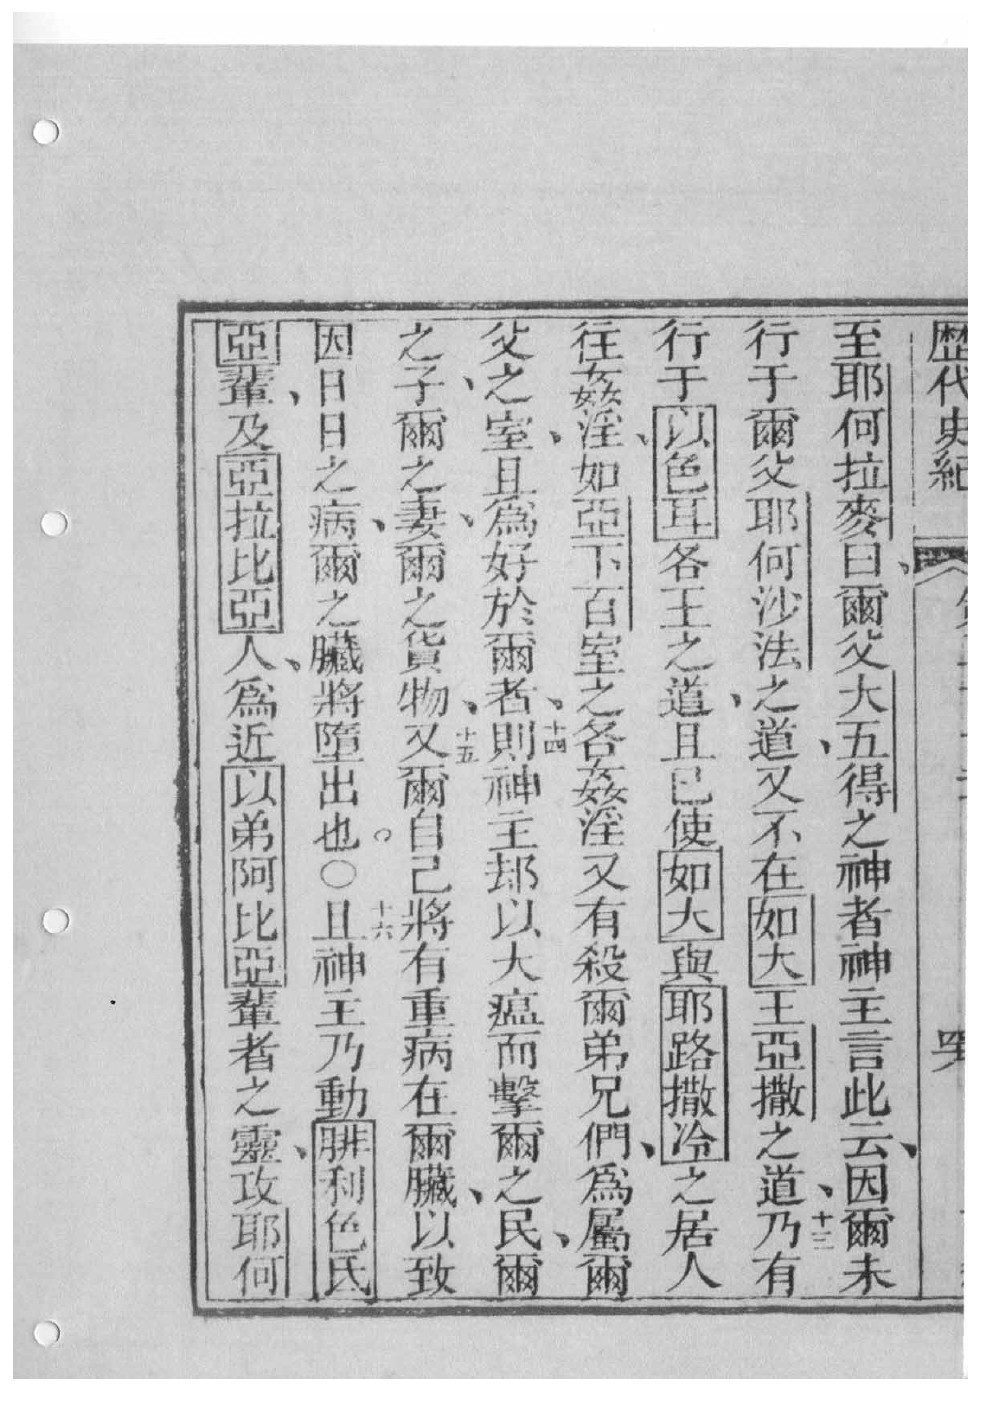 歷代史紀
至耶何拉麥曰、爾父大五得之神者神主言此云、因爾未
行于爾父耶何沙法之道、又不在如大王亞撒之道、十三乃有
行于以色耳各王之道、且已使如大與耶路撒冷之居人
往姦淫、如亞下百室之各姦淫又有殺爾弟兄們、爲屬爾
父之室、且爲好於爾者、十四則神主却以大瘟而擊爾之民、爾
之子、爾之妻、爾之貨物、十五又爾自己將有重病在爾臟、以致
因日日之病、爾之臟將墮出也。○十六且神主乃動腓利色氏
亞輩、及亞拉比亞人、爲近以弟阿比亞輩者之靈、攻耶何